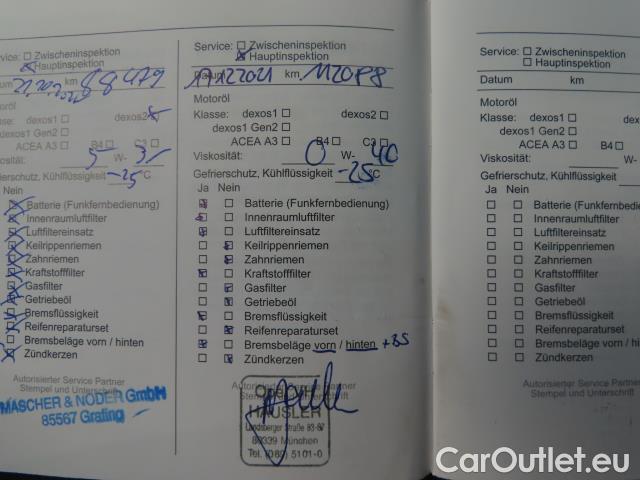 Service: Zwischeninspektion
Hauptinspektion
um km 88479
Motoröl
dexos1 dexos2
dexos1 Gen2
ACEA A3 B4 C3
Viskosität: 5 W-
efrierschutz, Kühlflüssigkeit -25 °C
Nein
Batterie (Funkfernbedienung)
Innenraumluftfilter
Luftfiltereinsatz
Keilrippenriemen
Zahnriemen
Kraftstofffilter
Gasfilter
Getriebeöl
Bremsflüssigkeit
Reifenreparaturset
Bremsbeläge vorn / hinten
Zündkerzen
Autorisierter Service Partner
Stempel und Unterschrift
MASCHER & NÖDER GmbH
85567 Grafing
Service: Zwischeninspektion
Hauptinspektion
Datum 17.12.2021 km 112088
Motoröl
Klasse: dexos1 dexos2
dexos1 Gen2
ACEA A3 B4 C3
Viskosität: 0 W- 40
Gefrierschutz, Kühlflüssigkeit -25 °C
Ja Nein
Batterie (Funkfernbedienung)
Innenraumluftfilter
Luftfiltereinsatz
Keilrippenriemen
Zahnriemen
Kraftstofffilter
Gasfilter
Getriebeöl
Bremsflüssigkeit
Reifenreparaturset
Bremsbeläge vorn / hinten
Zündkerzen
HÄUSLER
Landsberger Straße 83-87
80339 München
Tel. (089) 5101-0
Service: Zwischeninspektion
Hauptinspektion
Datum km
Motoröl
Klasse: dexos1
dexos1 Gen2
ACEA A3 B4
Viskosität: W-
Gefrierschutz, Kühlflüssigkeit
Ja Nein
Batterie (Funkfernb
Innenraumluftfilter
Luftfiltereinsatz
Keilrippenriemen
Zahnriemen
Kraftstofffilter
Gasfilter
Getriebeöl
Bremsflüssigkeit
Reifenreparaturset
Bremsbeläge vorn /
Zündkerzen
Autorisierter Service Partner
Stempel und Unterschrift
CarOutlet.eu